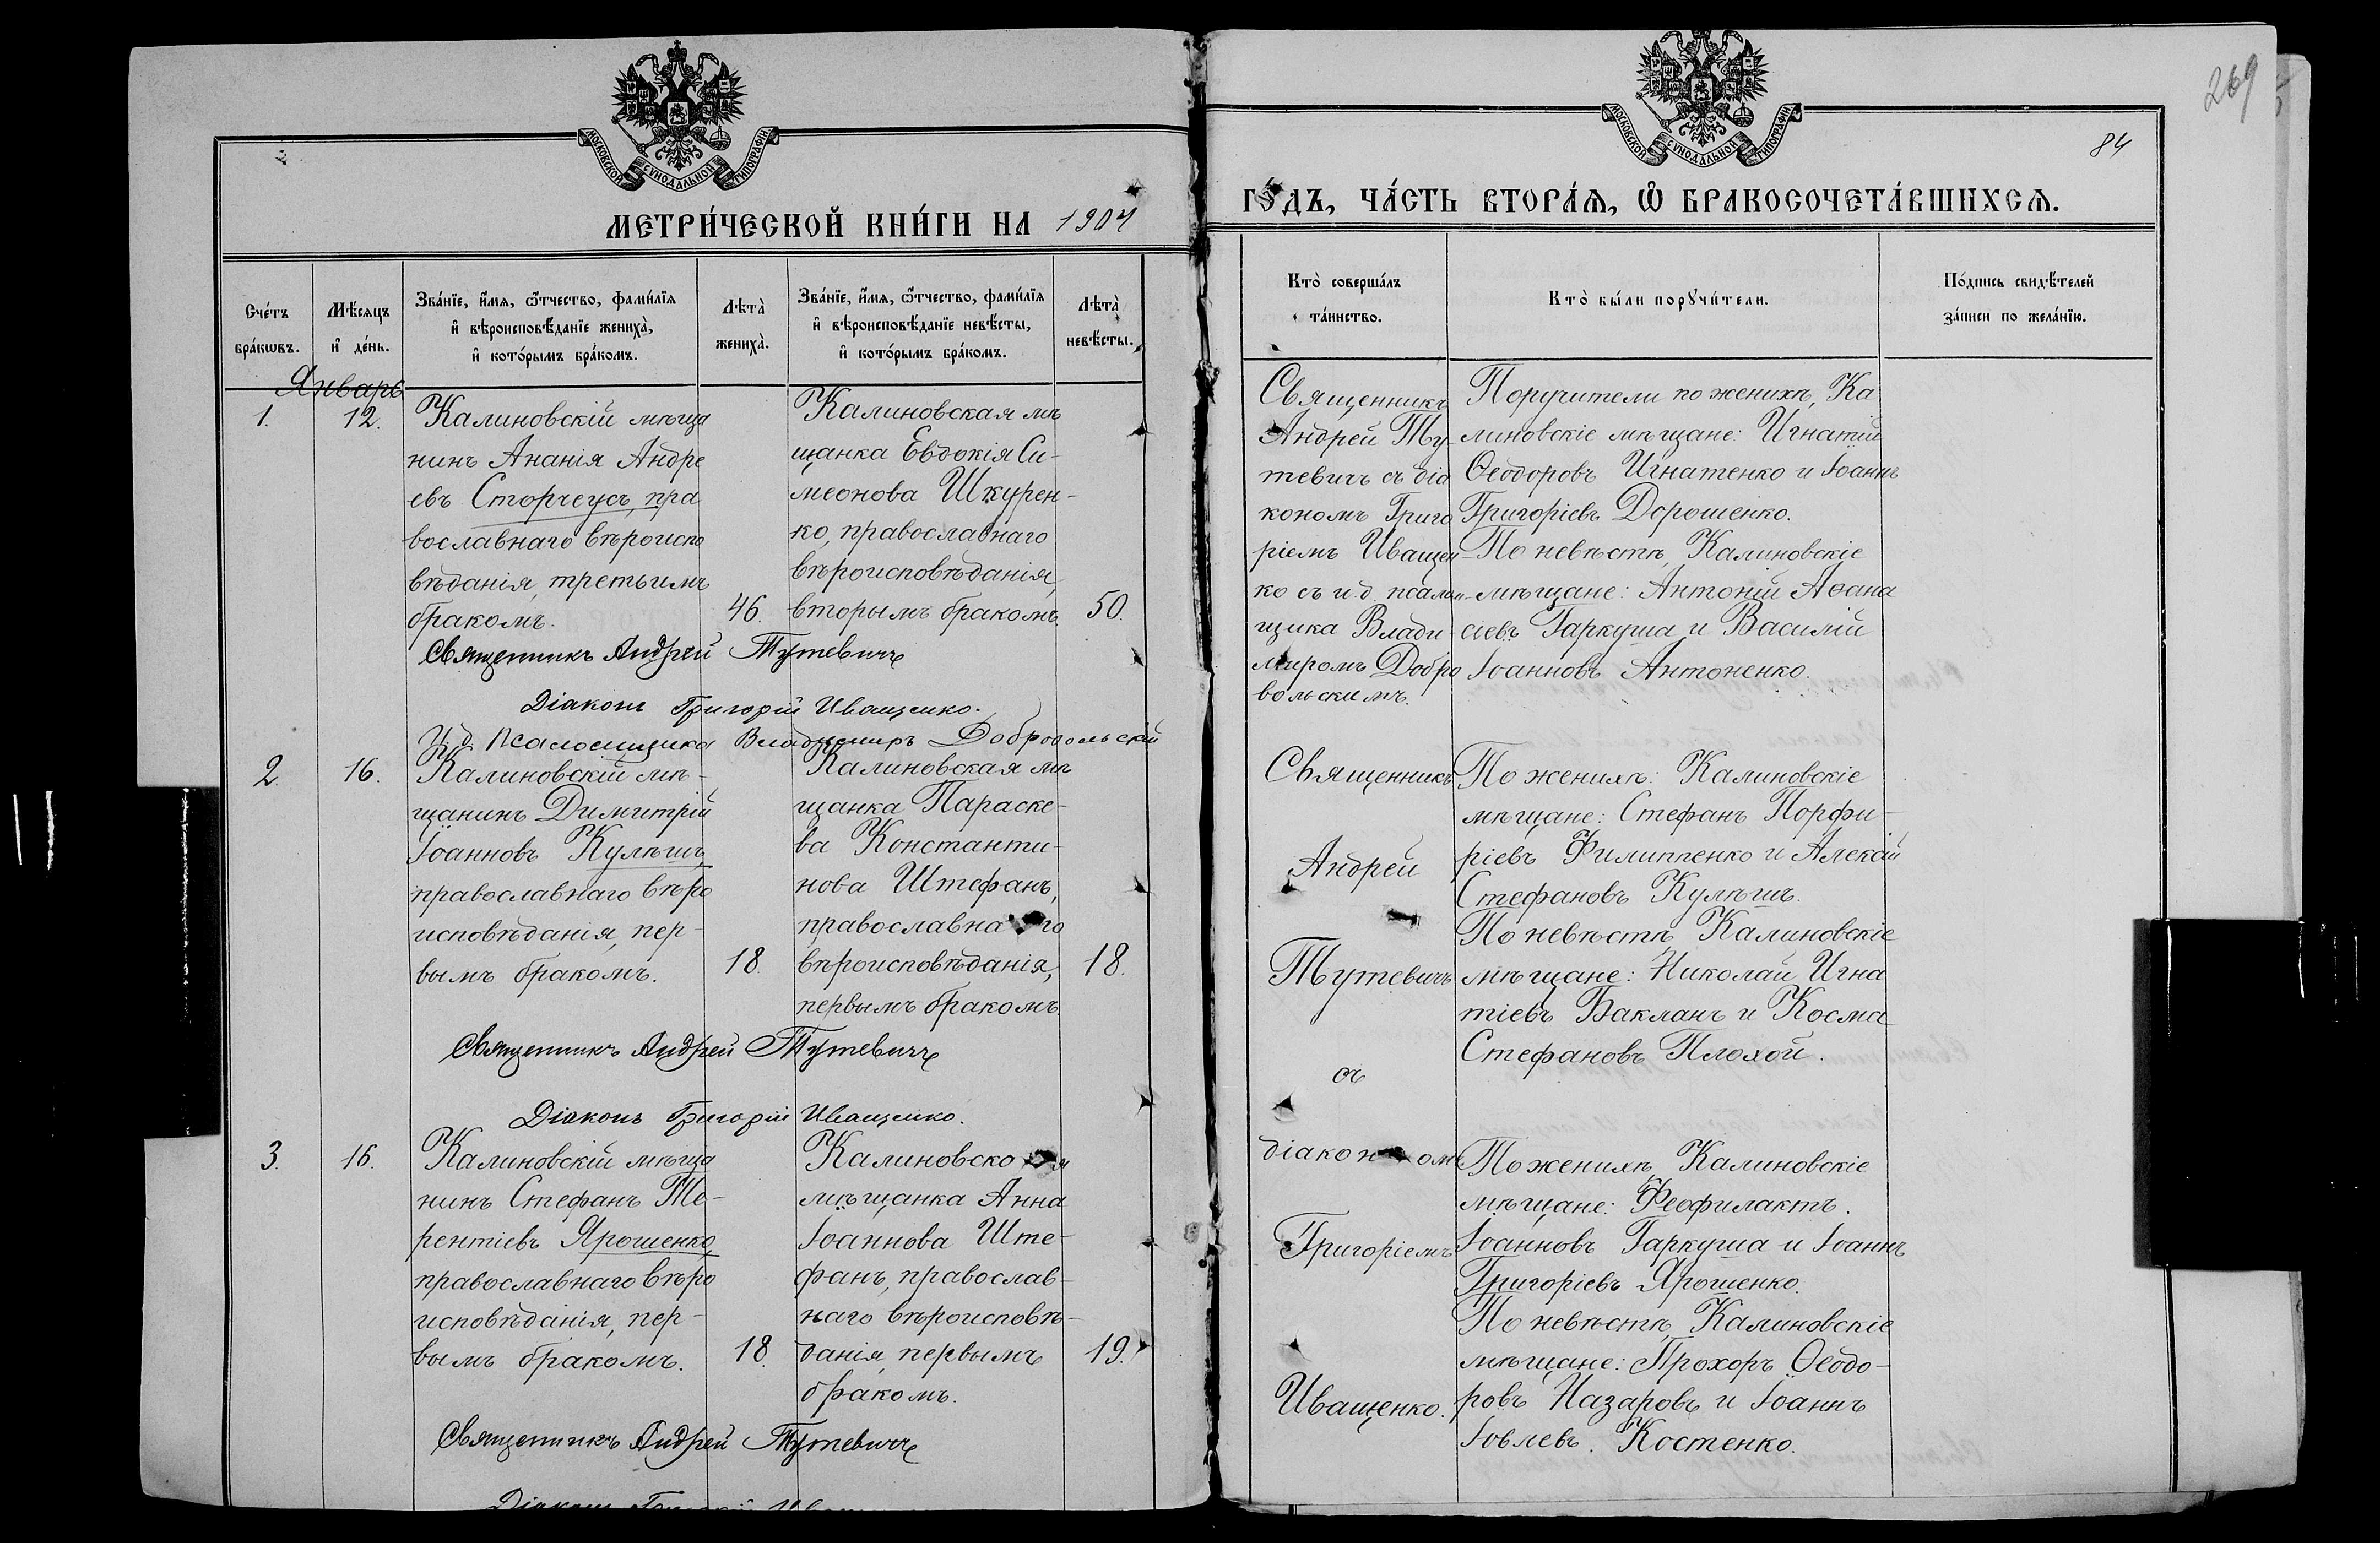 МОСКОВСКОЙ СѴНОДАЛЬНОЙ ТИПОГРАФІИ
МЕТРИ́ЧЕСКОЙ КНИ́ГИ НА 1904
Сче́тъ
бра́кѡвъ.
Мѣ́сяцъ
и҆ де́нь.
Зва́нїе, и҆́мя, ѻ҆́тчество, фами́лїя
и҆ вѣроисповѣ́данїе жениха̀,
и҆ кото́рымъ бра́комъ.
Лѣта̀
жениха̀.
Зва́нїе, и҆́мя, ѻ҆́тчество, фами́лїя
и҆ вѣроисповѣ́данїе невѣ́сты,
и҆ кото́рымъ бра́комъ.
Лѣта̀
невѣ́сты.
Январь
1.
12.
Калиновскій мѣща
нинъ Ананія Андре
евъ Сторчеусъ, пра
вославнаго вѣроиспо
вѣданія, третьимъ
бракомъ.
46.
Калиновская мѣ
щанка Евдокія Си-
меонова Шкурен-
ко, православнаго
вѣроисповѣданія,
вторымъ бракомъ
50.
Священникъ Андрей Тутевичъ
Діаконъ Григорій Иващенко.
И. д. Псаломщика Владимиръ Добровольскій
2.
16.
Калиновскій мѣ-
щанинъ Димитрій
Іоанновъ Кулѣшъ,
православнаго вѣро
исповѣданія, пер-
вымъ бракомъ.
18.
Калиновская мѣ
щанка Параске-
ва Константи-
нова Штефанъ,
православнаго
вѣроисповѣданія,
первымъ бракомъ.
18.
Священникъ Андрей Тутевичъ
Діаконъ Григорій Иващенко.
3.
16.
Калиновскій мѣща
нинъ Стефанъ Те-
рентіевъ Ярошенко,
православнаго вѣро
исповѣданія, пер-
вымъ бракомъ.
18.
Калиновская
мѣщанка Анна
Іоаннова Ште-
фанъ, православ-
наго вѣроисповѣ-
данія, первымъ
бракомъ.
19.
Священникъ Андрей Тутевичъ
269
84
МОСКОВСКОЙ СѴНОДАЛЬНОЙ ТИПОГРАФІИ
ГО́ДЪ, ЧА́СТЬ ВТОРА́Я, Ѡ҆ БРАКОСОЧЕТА́ВШИХСЯ.
Кто̀ соверша́лъ
та́инство.
Кто̀ бы́ли порꙋчи́тели.
По́дпись свидѣ́телей
за́писи по жела́нїю.
Священникъ
Андрей Ту-
тевичъ съ діа
кономъ Григо
ріемъ Иващен-
ко съ и.д. псалом-
щика Влади
миромъ Добро
вольскимъ.
Поручители по женихѣ, Ка
линовскіе мѣщане: Игнатій
Ѳеодоровъ Игнатенко и Іоаннъ
Григоріевъ Дорошенко.
По невѣстѣ, Калиновскіе
мѣщане: Антоній Аѳана
сіевъ Гаркуша и Василій
Іоанновъ Антоненко.
Священникъ
Андрей
Тутевичъ
съ
діакономъ
Григоріемъ
Иващенко.
По женихѣ: Калиновскіе
мѣщане: Стефанъ Порфи-
ріевъ Филиппенко и Алексій
Стефановъ Кулѣшъ.
По невѣстѣ, Калиновскіе
мѣщане: Николай Игна
тіевъ Бакланъ и Косма
Стефановъ Плохой.
По женихѣ, Калиновскіе
мѣщане: Феофилактъ
Іоанновъ Гаркуша и Іоаннъ
Григоріевъ Ярошенко.
По невѣстѣ, Калиновскіе
мѣщане: Прохоръ Ѳеодо-
ровъ Назаровъ и Іоаннъ
Іовлевъ Костенко.